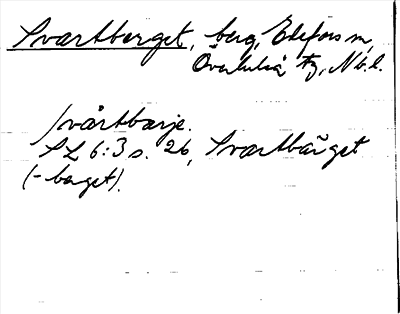 Svartberget, berg, Edefors sn,
Överluleå tg, Nb. l.
svártbarje.
SL 6:3 s. 26, Svartbärget
(-berget).